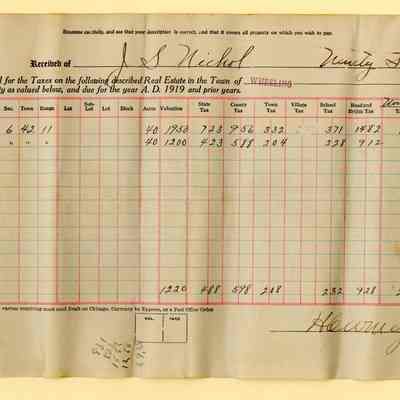 Examine carefully, and see that your description is correct, and that it covers all property on which you wish to pay.
Received of J S Nichol Ninety
d for the Taxes on the following described Real Estate in the Town of WHEELING
ty as valued below, and due for the year A. D. 1919 and prior years.
Sec. Town Range Lot Sub-Lot Lot Block Acres Valuation State Tax County Tax Town Tax Village Tax School Tax Road and Bridge Tax
6 42 11 40 1950 723 956 332 371 1482
" " " 40 1200 423 588 204 228 912
1220 488 598 208 232 928
Draft on Chicago, Currency by Express, or a Post Office Order
VOL. PAGE